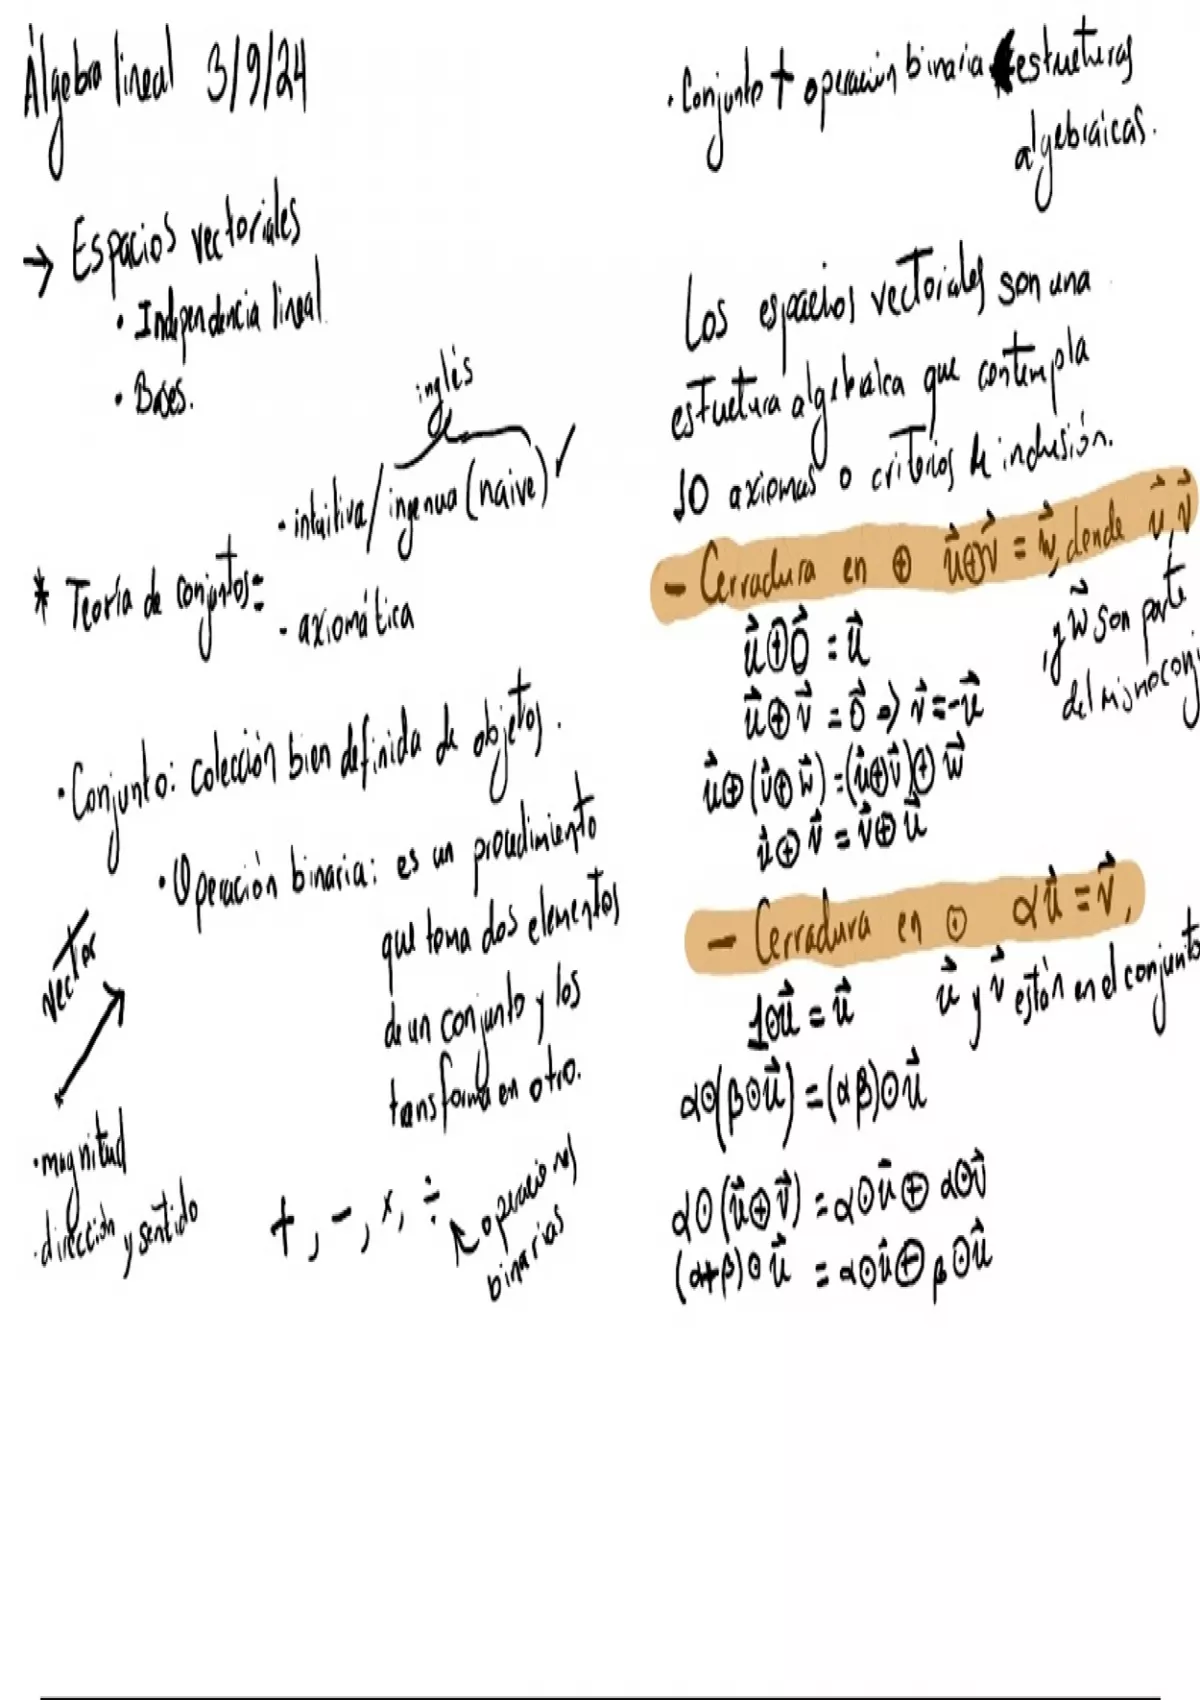 Álgebra lineal 3/9/24
→ Espacios vectoriales
· Independencia lineal
· Bases.
inglés
- intuitiva/ingenua (naive) ✓
* Teoría de conjuntos:
- axiomática
· Conjunto: colección bien definida de objetos.
· Operación binaria: es un procedimiento
que toma dos elementos
de un conjunto y los
transforma en otro.
vector
· magnitud
· dirección y sentido
+, -, x, ÷
operaciones
binarias
· Conjunto + operación binaria estructuras
algebraicas.
Los espacios vectoriales son una
estructura algebraica que contempla
10 axiomas o criterios de inclusión.
- Cerradura en ⊕ u⃗⊕v⃗ = w⃗, donde u⃗, v⃗
y w⃗ son parte
del mismo conj
u⃗⊕0⃗ = u⃗
u⃗⊕v⃗ = 0⃗ ⇒ v⃗ = -u⃗
u⃗⊕(v⃗⊕w⃗) = (u⃗⊕v⃗)⊕w⃗
u⃗⊕v⃗ = v⃗⊕u⃗
- Cerradura en ⊙ αu⃗ = v⃗,
u⃗ y v⃗ están en el conjunto
1⊙u⃗ = u⃗
α⊙(β⊙u⃗) = (αβ)⊙u⃗
α⊙(u⃗⊕v⃗) = α⊙u⃗ ⊕ α⊙v⃗
(α+β)⊙u⃗ = α⊙u⃗ ⊕ β⊙u⃗